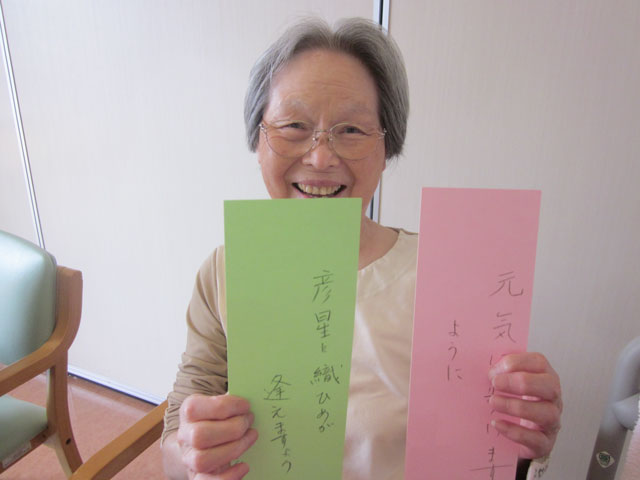 彦星と織ひめが
逢えますよう
元気に
けます
ように